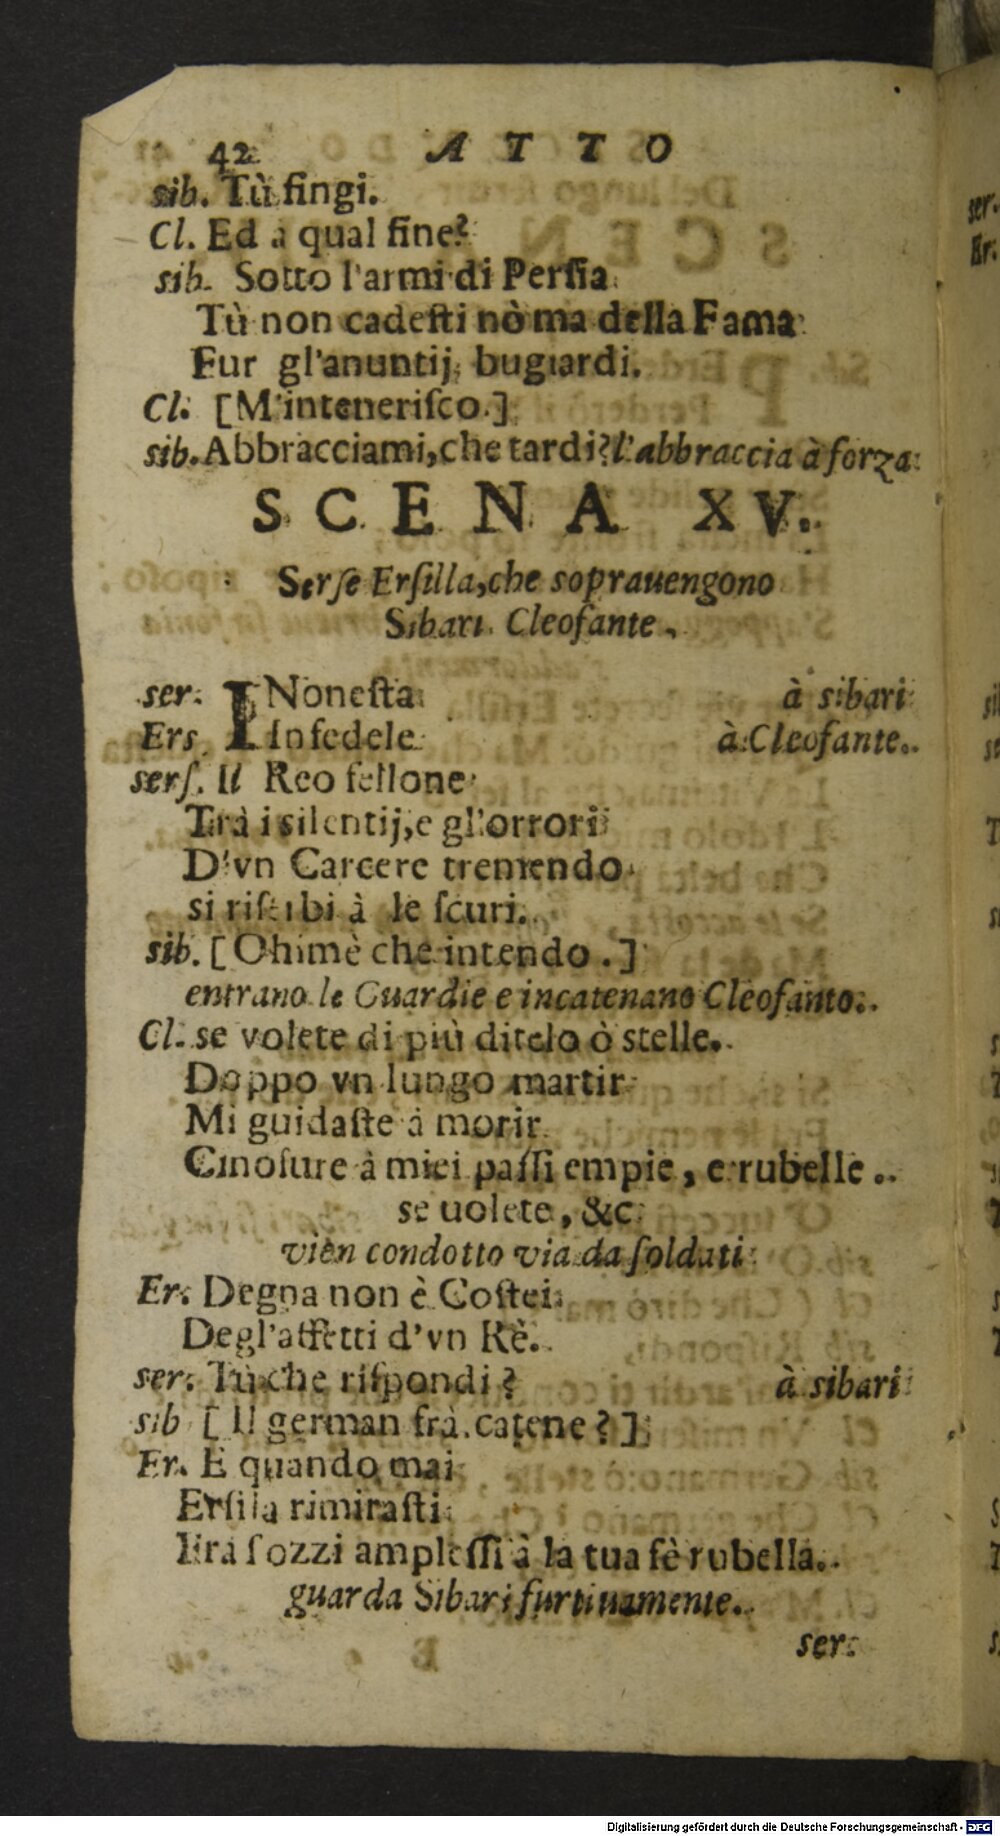 42 ATTO
sib. Tù fingi.
Cl. Ed à qual fine?
sib. Sotto l'armi di Persia
Tù non cadesti nò ma della Fama
Fur gl'anuntij bugiardi.
Cl. [M'intenerisco.]
sib. Abbracciami, che tardi? l'abbraccia à forza
SCENA XV.
Serse Ersilla, che soprauengono
Sibari Cleofante,
ser. INonesta à sibari
Ers. Infedele à Cleofante.
sers. Il Reo fellone
Trà i silentij, e gl'orrori
D'vn Carcere tremendo
si riserbi à le scuri.
sib. [Ohimè che intendo.]
entrano le Guardie e incatenano Cleofanto.
Cl. se volete di più ditelo ò stelle.
Doppo vn lungo martir
Mi guidaste à morir
Cinosure à miei passi empie, e rubelle.
se uolete, &c.
vien condotto via da soldati
Er. Degna non è Costei
Degl'affetti d'vn Rè.
ser. Tù che rispondi? à sibari
sib [Il german frà catene?]
Er. E quando mai
Ersila rimirasti
Frà sozzi amplessi à la tua fè rubella.
guarda Sibari furtiuamente.
ser.
Digitalisierung gefördert durch die Deutsche Forschungsgemeinschaft - DFG